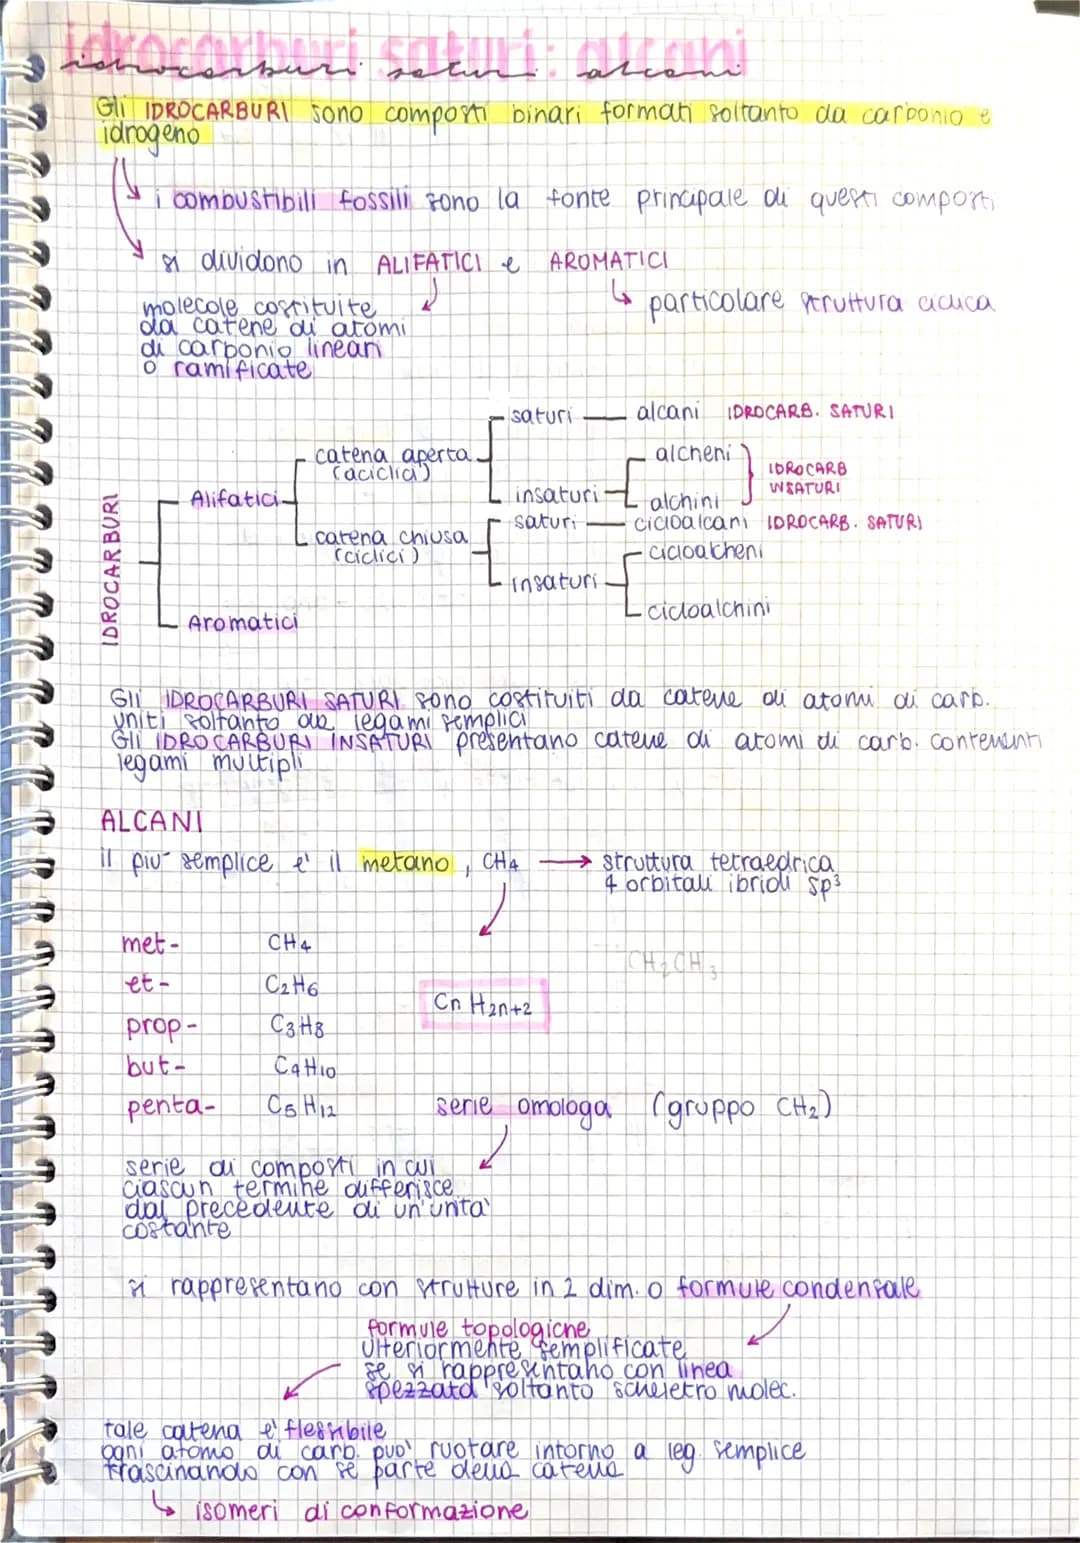 idrocarburi saturi: alcani
Gli IDROCARBURI sono composti binari formati soltanto da carbonio e
idrogeno
i combustibili fossili sono la fonte principale di questi composti
si dividono in ALIFATICI e AROMATICI
particolare struttura ciclica
molecole costituite
da catene di atomi
di carbonio lineari
o ramificate
IDROCARBURI
Alifatici
catena aperta
(aciclici)
saturi
alcani IDROCARB. SATURI
insaturi
alcheni
alchini
IDROCARB
INSATURI
catena chiusa
(ciclici)
saturi
cicloalcani IDROCARB. SATURI
insaturi
cicloalcheni
cicloalchini
Aromatici
Gli IDROCARBURI SATURI sono costituiti da catene di atomi di carb.
uniti soltanto da legami semplici
Gli IDROCARBURI INSATURI presentano catene di atomi di carb. contenenti
legami multipli
ALCANI
il più semplice e' il metano, CH4 → struttura tetraedrica
4 orbitali ibridi sp³
met- CH4
CH2CH3
et- C2H6
Cn H2n+2
prop- C3H8
but- C4H10
penta- C5H12
serie omologa (gruppo CH2)
serie di composti in cui
ciascun termine differisce
dal precedente di un'unità
costante
si rappresentano con strutture in 2 dim. o formule condensate
formule topologiche
ulteriormente semplificate
se si rappresentano con linea
spezzata soltanto scheletro molec.
tale catena e' flessibile
ogni atomo di carb. può ruotare intorno a leg. semplice
trascinando con sé parte della catena
isomeri di conformazione